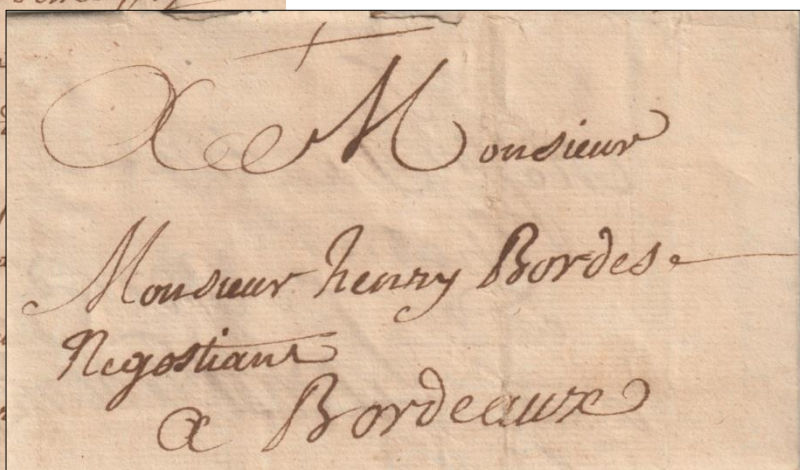 A Monsieur
Monsieur henry Bordes
Negostiant
a Bordeaux